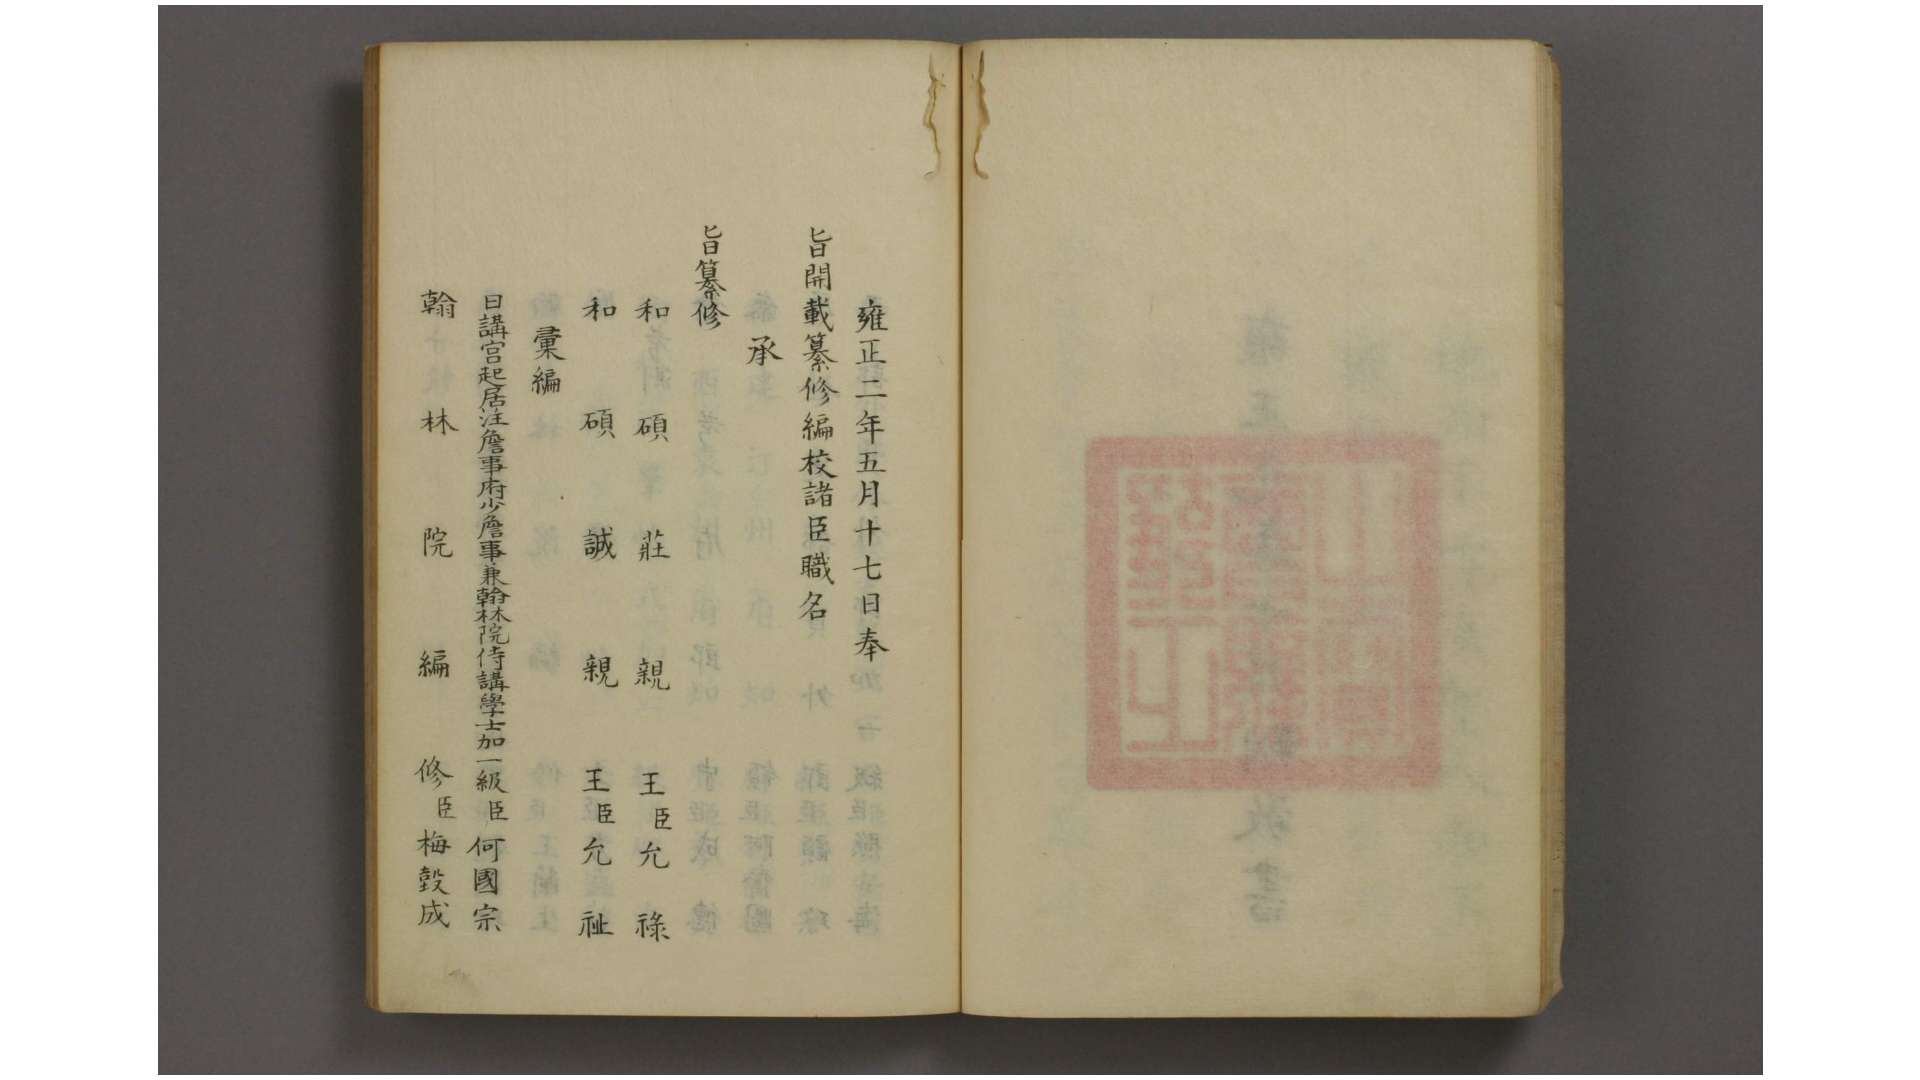 雍正二年五月十七日奉
旨開載纂修編校諸臣職名
承
旨纂修
和碩莊親王臣允祿
和碩誠親王臣允祉
彙編
日講官起居注詹事府少詹事兼翰林院侍講學士加一級臣何國宗
翰林院編修臣梅瑴成